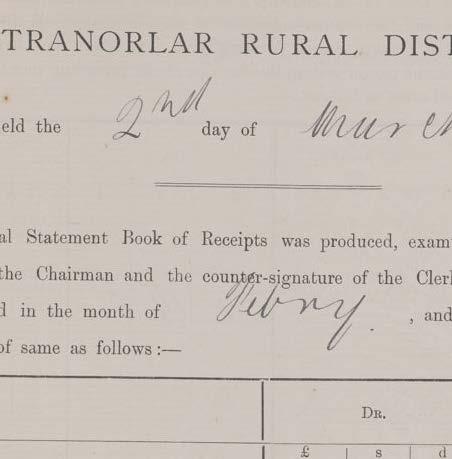 TRANORLAR RURAL DIST
eld the 2nd day of March
al Statement Book of Receipts was produced, exam
the Chairman and the counter-signature of the Cler
d in the month of Febry. , and
of same as follows :—
DR.
£ s d